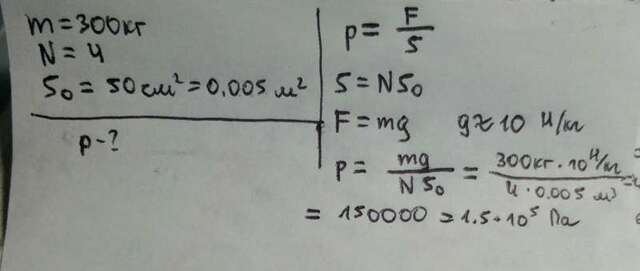 m = 300кг
N = 4
S₀ = 50 см² = 0,005 м²
p - ?
p = F/S
S = NS₀
F = mg g ≈ 10 Н/кг
p = mg/NS₀ = 300кг · 10 Н/кг / 4 · 0.005 м² =
= 150000 = 1.5 · 10⁵ Па